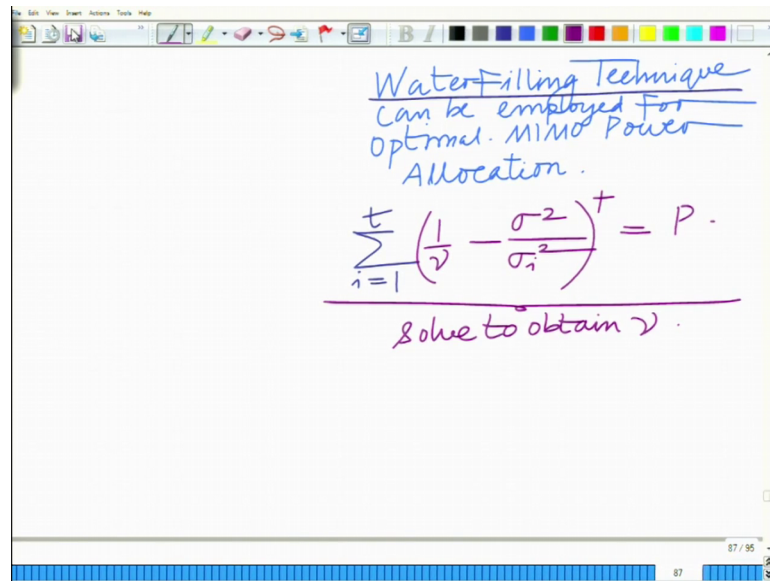 File Edit View Insert Actions Tools Help
B I
Water-Filling Technique
can be employed For
Optimal. MIMO Power
Allocation.
\sum_{i=1}^{t} \left( \frac{1}{\nu} - \frac{\sigma^2}{\sigma_i^2} \right)^+ = P.
solve to obtain ν.
87 / 95
87